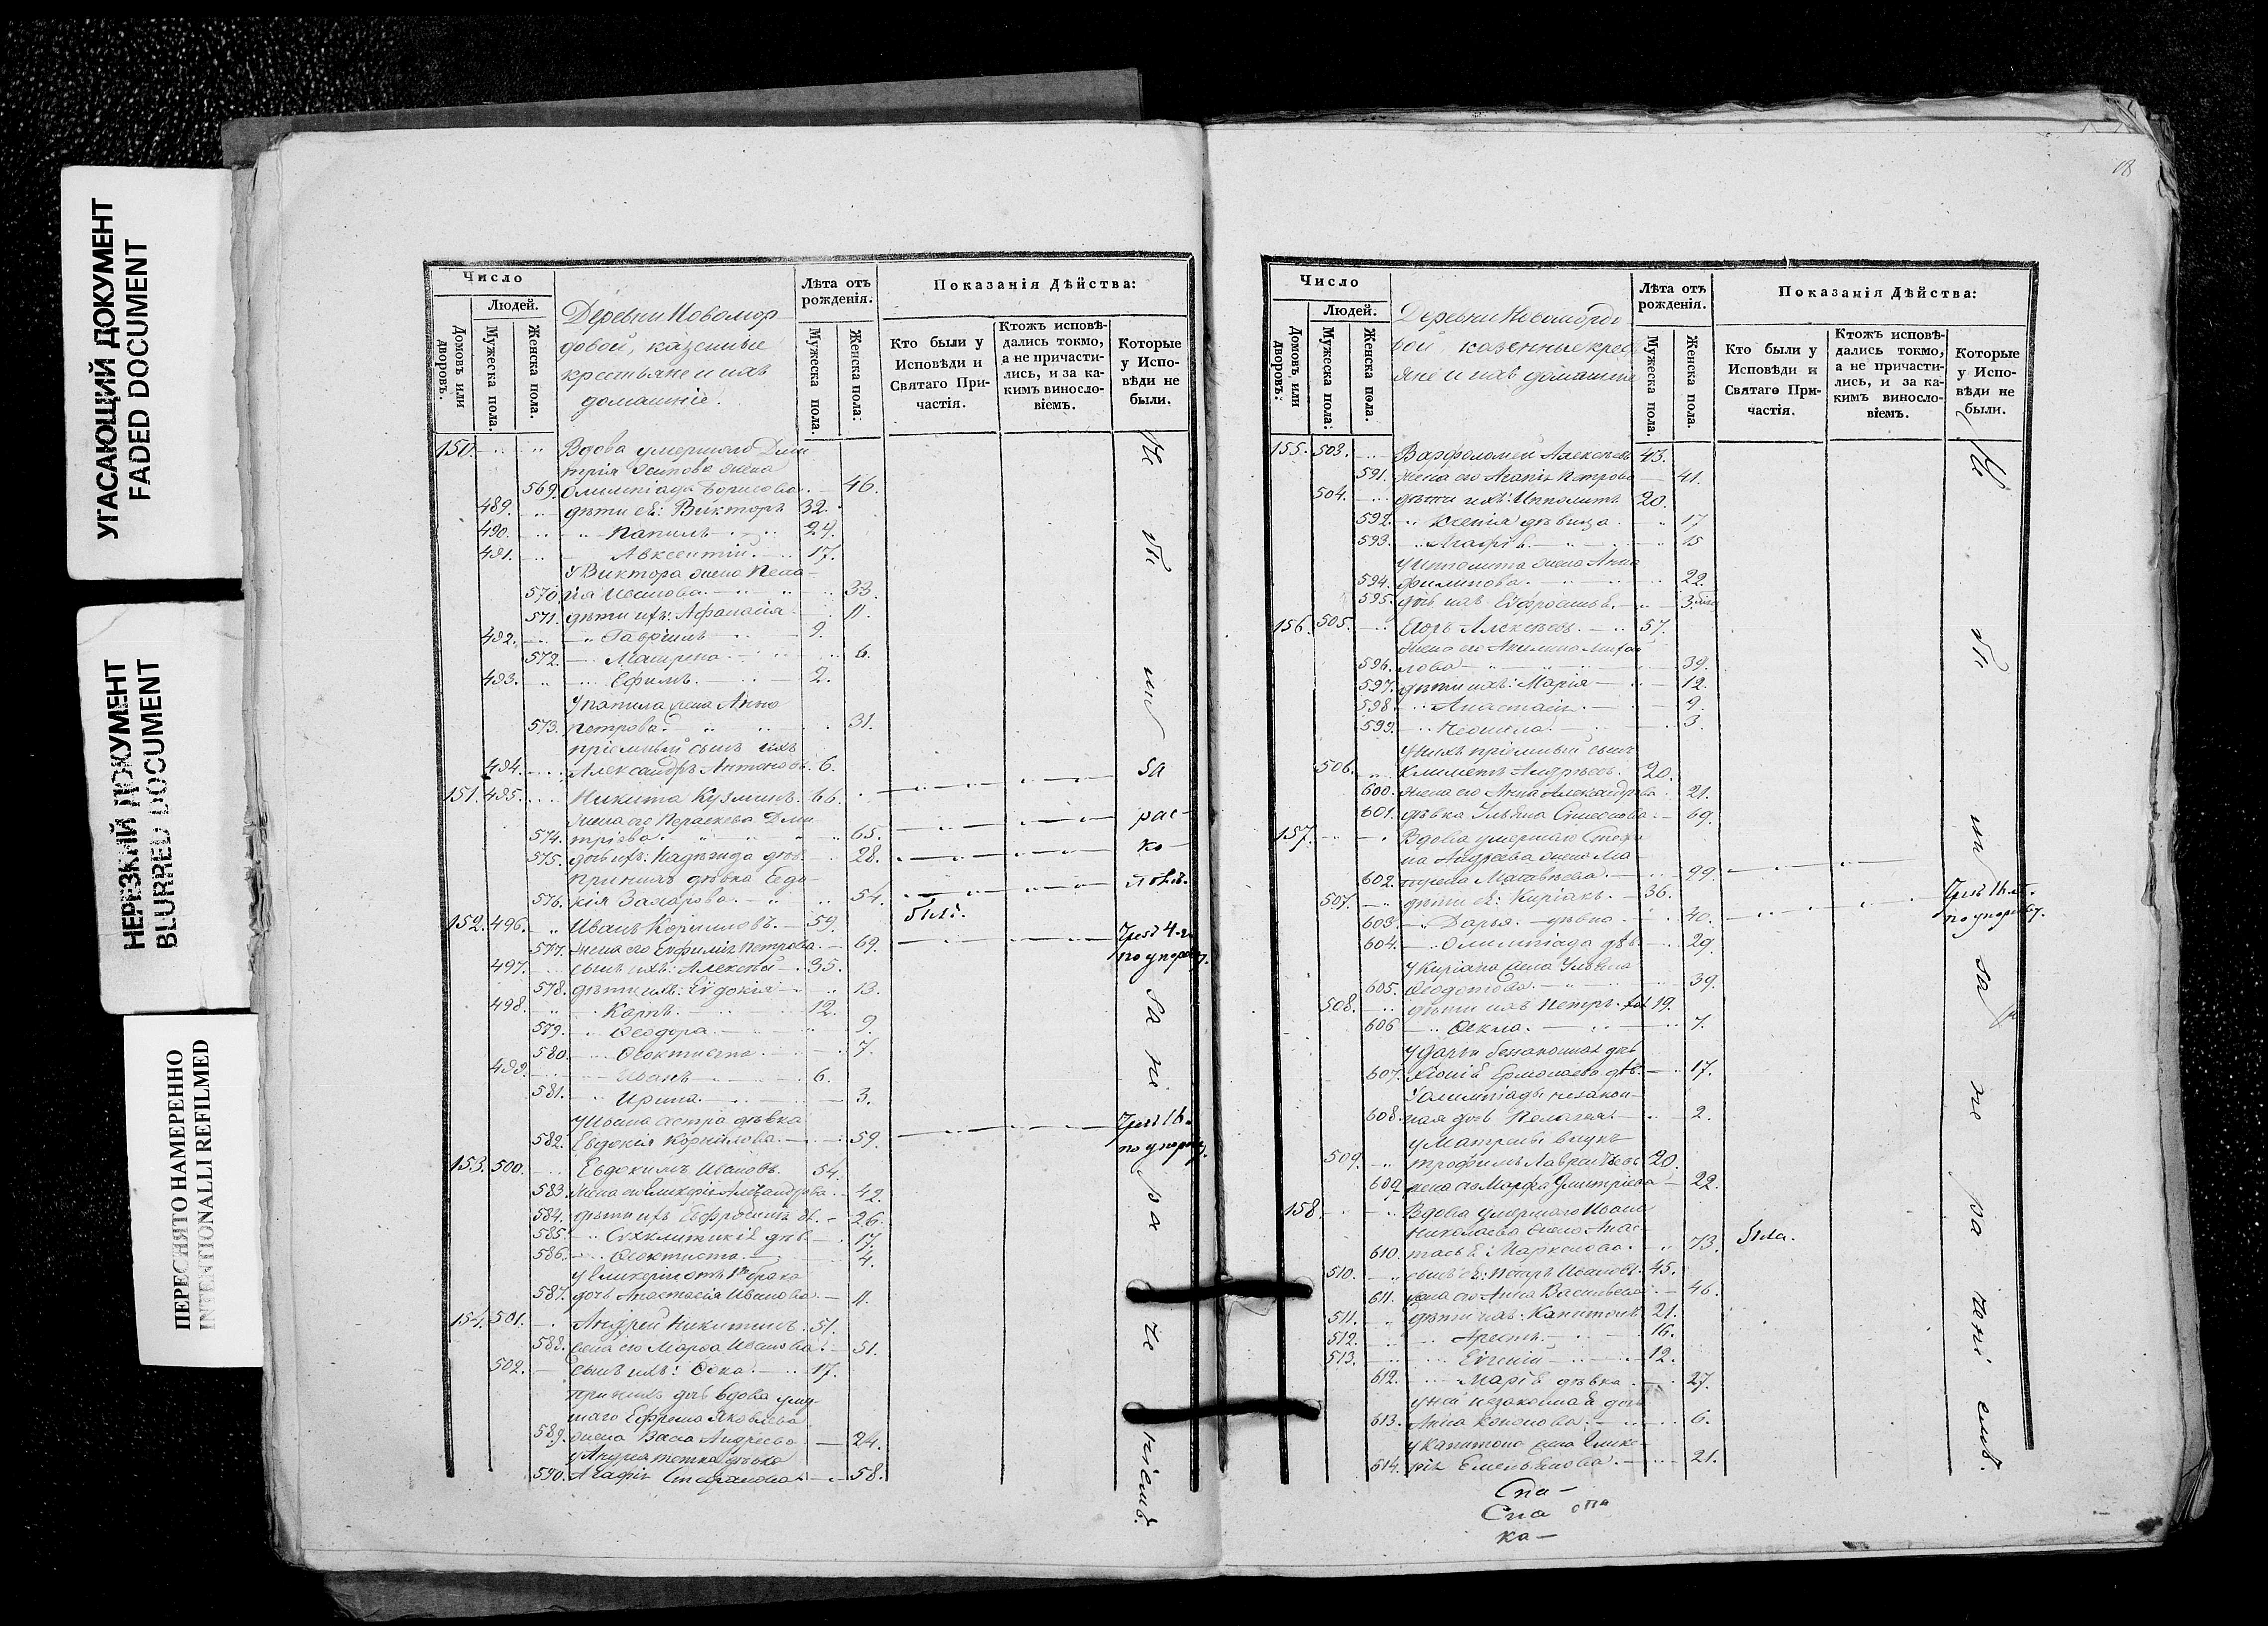 УГАСАЮЩИЙ ДОКУМЕНТ
FADED DOCUMENT
НЕРІЗКИЙ ДОКУМЕНТ
BLURRED DOCUMENT
ПЕРЕСНЯТО НАМЕРЕННО
INTENTIONALLI REFILMED
Число
Людей.
Домовъ или дворовъ.
Мужеска пола.
Женска пола.
Деревни Новомор
довой, казенные
крестьяне и ихъ
домашніе.
Лѣта отъ рожденія.
Мужеска пола.
Женска пола.
Показанія Дѣйства:
Кто были у Исповѣди и Святаго Причастія.
Ктожъ исповѣдались токмо, а не причастились, и за какимъ винословіемъ.
Которые у Исповѣди не были.
150. Вдова умершаго Дми
трія Осипова жена
569. Олимпіада Борисова. 46.
489. дѣти ея: Викторъ 32.
490. Папилъ 24.
491. Авксентій. 17.
У Виктора жена Пела
570. гія Иванова. 33.
571. дѣти ихъ: Афанасія 11.
492. Гавріилъ 9.
572. Матрена 6.
493. Ефимъ. 2.
У Папила жена Анна
573. Петрова. 31.
пріемный сынъ ихъ
494. Александръ Антоновъ. 6.
151. 495. Никита Кузминъ. 66.
жена его Параскева Дми
574. тріева. 65.
575. дочь ихъ: Надежда дѣв. 28.
при нихъ дѣвка Евдо
576. кія Захарова. 54.
152. 496. Иванъ Корниловъ. 59. былъ.
577. жена его Евфимія Петрова 69.
по упорству.
497. сынъ ихъ: Алексѣй 35.
578. дѣти ихъ: Евдокія 13.
498. Карпъ. 12.
579. Ѳеодора. 9.
580. Ѳеоктиста. 7.
499. Иванъ 6.
581. Ирина. 3.
У Ивана сестра дѣвка
582. Евдокія Корнилова. 59.
по упорству.
153. 500. Евдокимъ Ивановъ. 54.
583. жена его Гликерія Александрова. 42.
584. дѣти ихъ Евфросинія дѣв. 26.
585. Сѵнклитикія дѣв. 17.
586. Ѳеоктиста. 4.
У Гликеріи отъ 1го брака
587. дочь Анастасія Иванова. 11.
154. 501. Андрей Никитинъ. 51.
588. жена его Марѳа Иванова. 51.
502. сынъ ихъ: Ѳока 17.
при нихъ дочь вдова умер
шаго Ефрема Яковлева
589. жена Васса Андреева 24.
У Андрея тетка дѣвка
590. Агафія Стефанова 58.
не бы ли за рас ко ломъ.
за не ра че ніемъ.
Число
Людей.
Домовъ или дворовъ.
Мужеска пола.
Женска пола.
Деревни Новомордо
вой, казенные крест
яне и ихъ домашніе
Лѣта отъ рожденія.
Мужеска пола.
Женска пола.
Показанія Дѣйства:
Кто были у Исповѣди и Святаго Причастія.
Ктожъ исповѣдались токмо, а не причастились, и за какимъ винословіемъ.
Которые у Исповѣди не были.
155. 503. Варфоломей Алексѣевъ 43.
591. жена его Агапія Петрова 41.
504. дѣти ихъ: Ипполитъ 20.
592. Ксенія дѣвица. 17
593. Агафія. 15
У Ипполита жена Анна
594. Филипова. 22.
595. дочь ихъ Евфросинія. 3.
156. 505. Егоръ Алексѣевъ. 57.
жена его Акилина Михай
596. лова 39.
597. дѣти ихъ: Марія 12.
598. Анастасія. 9.
599. Неонила. 3.
У нихъ пріемный сынъ
506. Климентъ Андрѣевъ. 20.
600. жена его Анна Александрова 21.
601. дѣвка Ульяна Симеонова 69.
157. Вдова умершаго Степа
на Андреева жена Ма
602. трена Матвѣева.
507. дѣти ея: Киріакъ. 36.
603. Дарья. дѣвка 40. по упорству.
604. Олимпіада дѣв. 29.
У Киріака жена Ульяна
605. Ѳеодотова. 39.
508. дѣти ихъ Петръ. 19.
606 Ѳекла. 7.
У Дарьи беззаконная дочь
607. Хіонія Ермолаева дѣв. 17.
У Олимпіады незакон
608. ная дочь Пелагея 2.
У Матрены внукъ
509. Трофимъ Лаврентьевъ 20.
609 жена его Марфа Дмитріева 22.
158. Вдова умершаго Ивана
Николаева жена Анас
610. тасія Маркелова. 73. была.
510. сынъ ея: Петръ Ивановъ. 45.
611. жена его Анна Васильева 46.
511. дѣти ихъ: Капитонъ 21.
512. Орестъ. 16.
513. Евгеній 12.
612. Марія дѣвка. 27.
У ней незаконная дочь
613. Анна Кононова. 6.
У Капитона жена Глике
614. рія Емельянова. 21.
не бы ли за не ра чені емъ.
Спа
Спа спа
ка